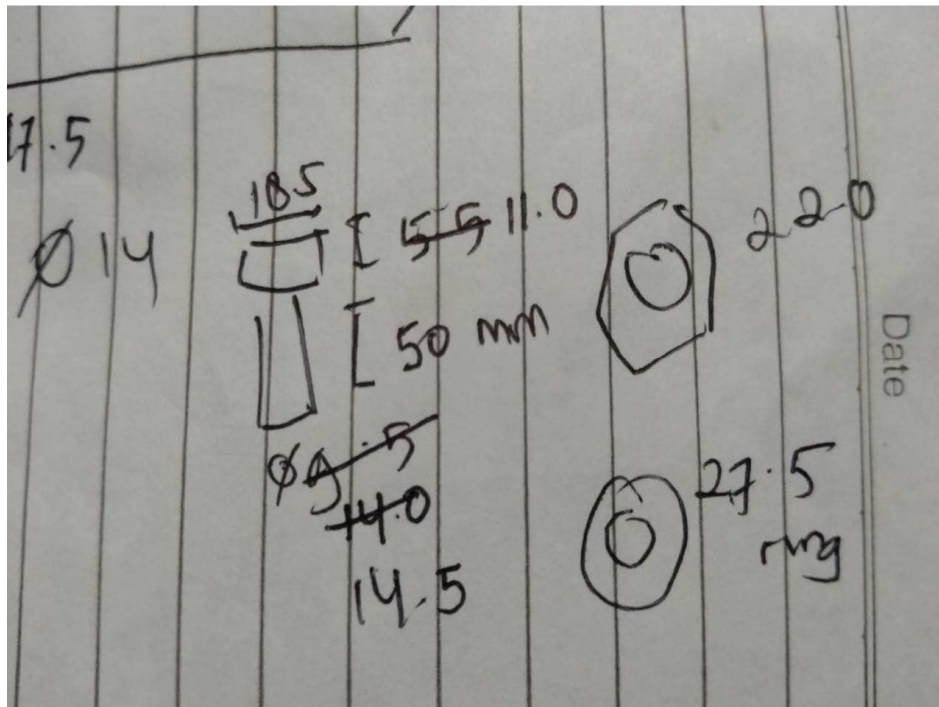 17.5
Ø 14
18.5
5.5 11.0
50 mm
Ø 9.5
14.0
14.5
22.0
27.5
ring
Date